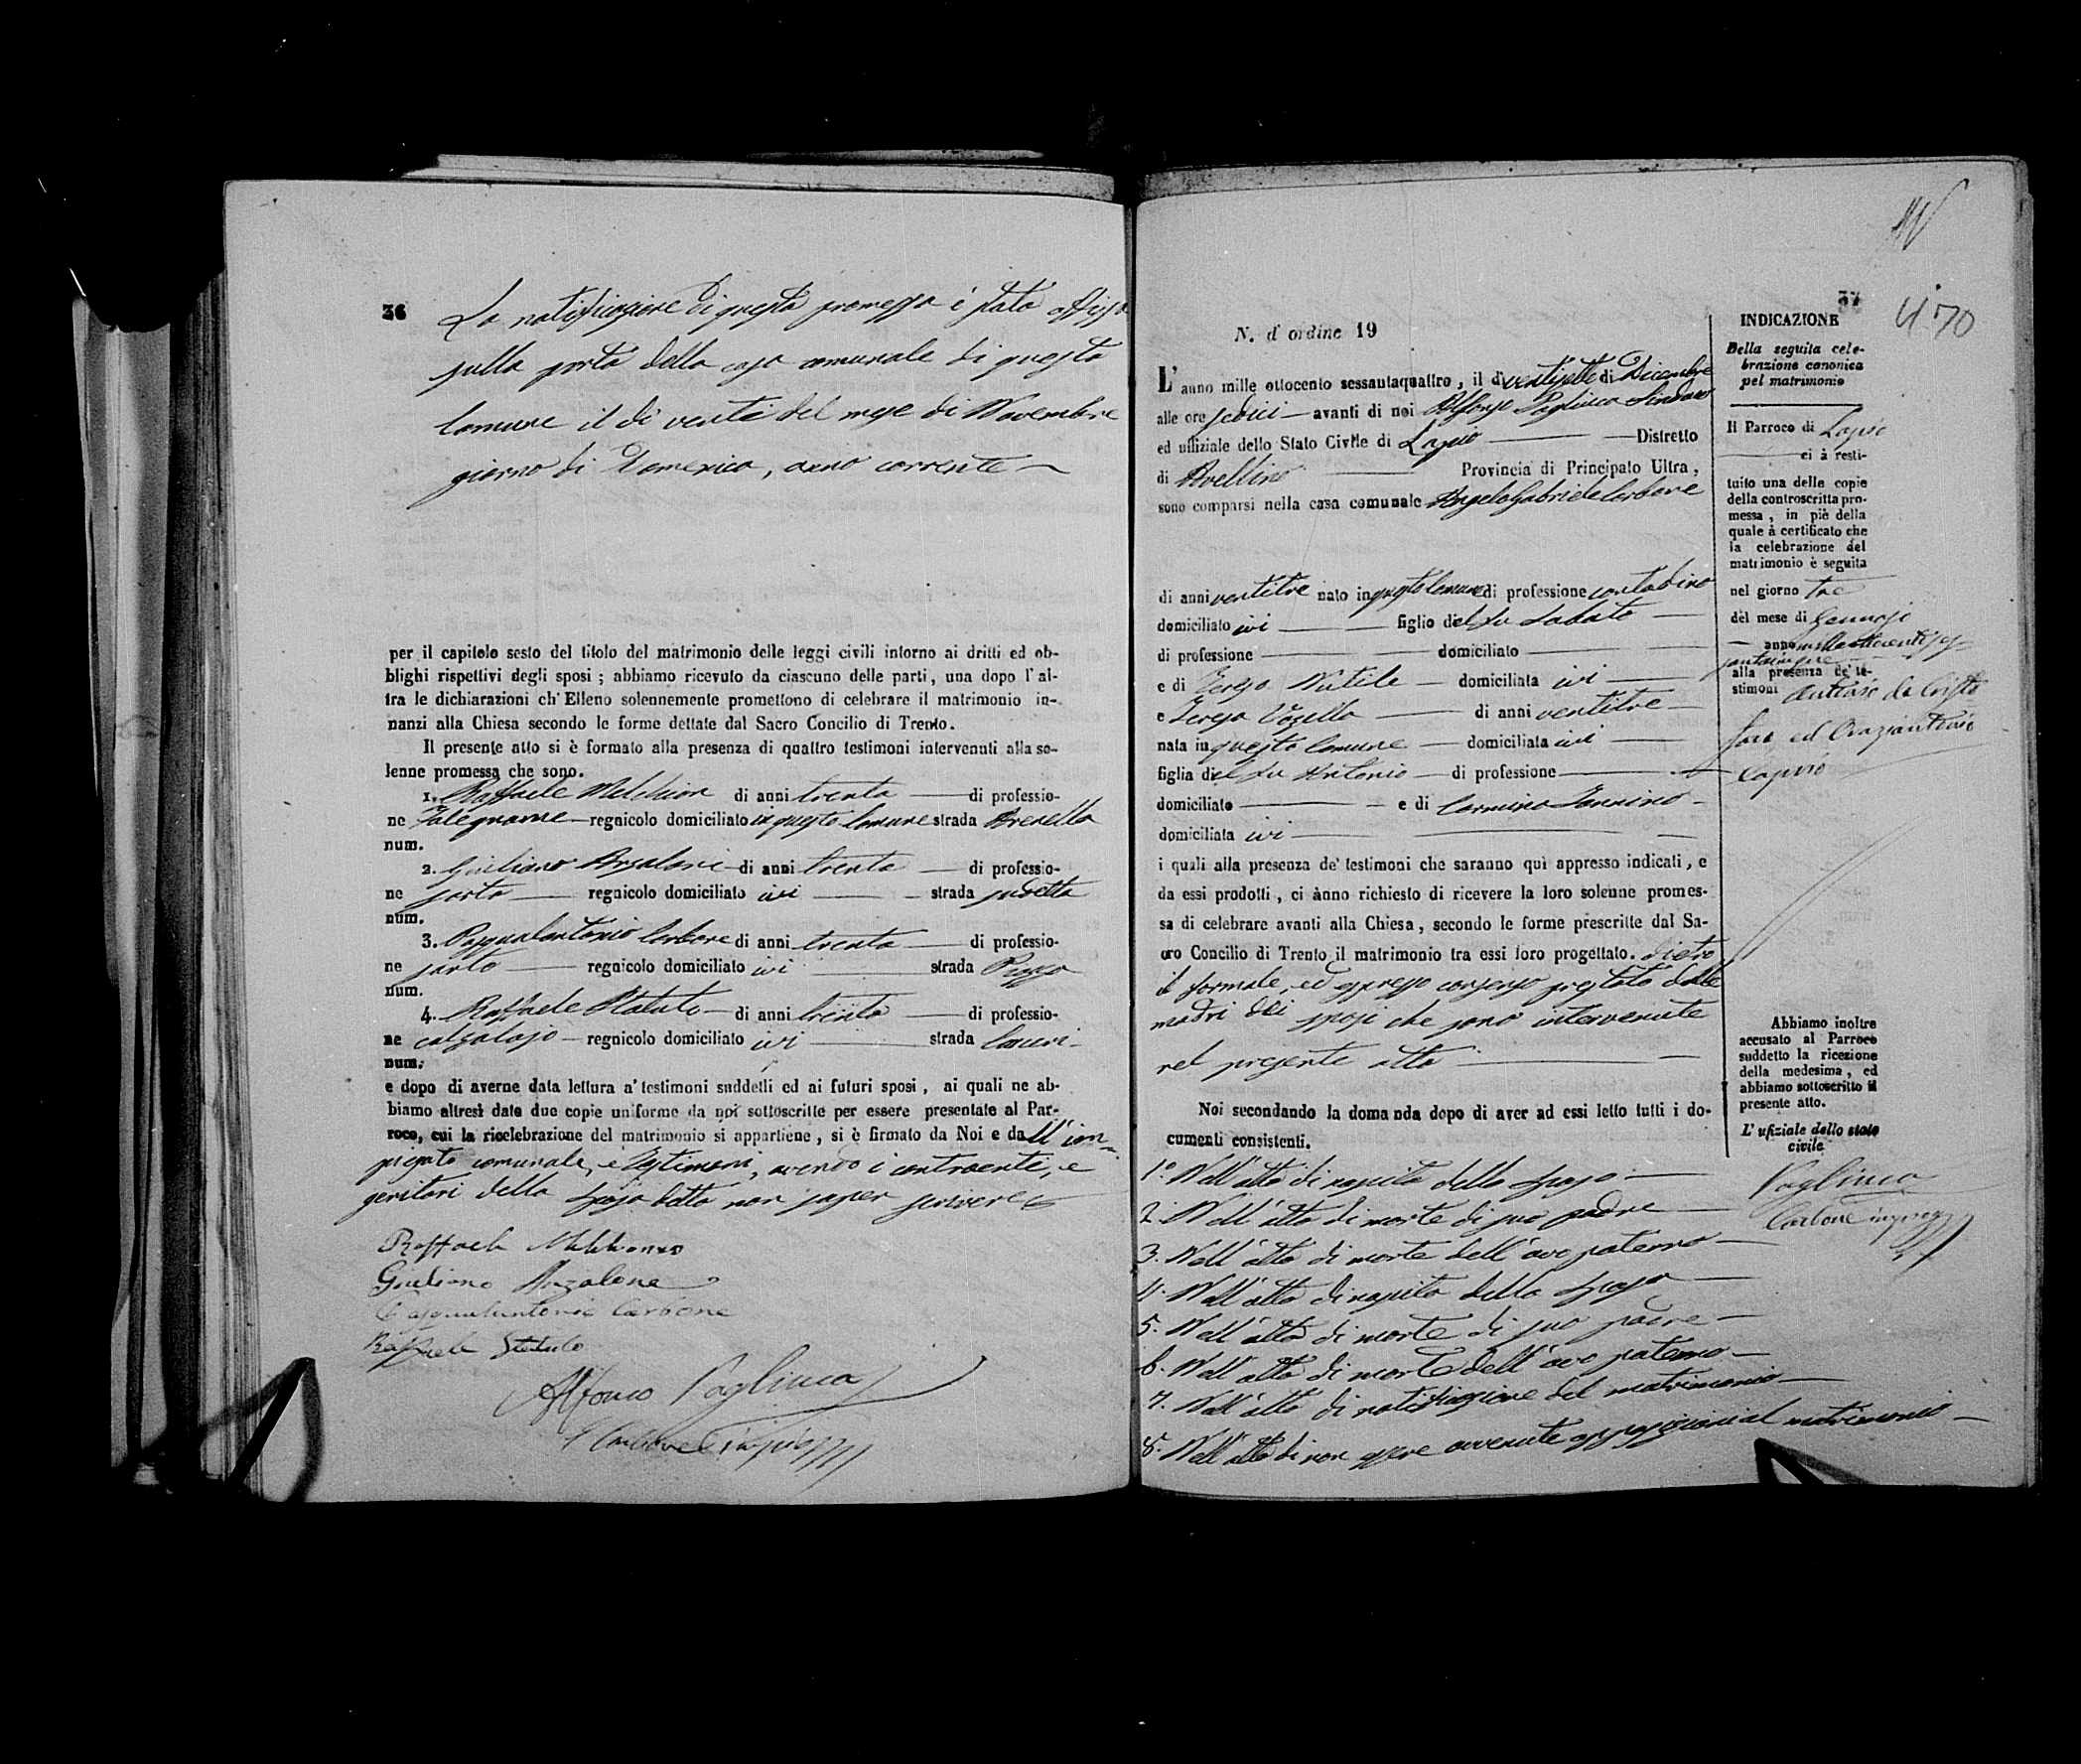 36
La notificazione di questa promessa è stata affissa
sulla porta della casa comunale di questo
Comune il dì venti del mese di Novembre
giorno di Domenica, anno corrente
per il capitolo sesto del titolo del matrimonio delle leggi civili intorno ai dritti ed ob-
blighi rispettivi degli sposi ; abbiamo ricevuto da ciascuno delle parti, una dopo l' al-
tra le dichiarazioni ch' Elleno solennemente promettono di celebrare il matrimonio in-
nanzi alla Chiesa secondo le forme dettate dal Sacro Concilio di Trento.
Il presente atto si è formato alla presenza di quattro testimoni intervenuti alla so-
lenne promessa che sono.
1. Raffaele Melchion di anni trenta di professio-
ne Falegname regnicolo domiciliato in questo Comune strada Arenella
num.
2. Giuliano Anzalone di anni trenta di professio-
ne sarto regnicolo domiciliato ivi strada
num.
3. Pasqualantonio Carbone di anni trenta di professio-
ne sarto regnicolo domiciliato ivi strada Piazza
num.
4. Raffaele Statuto di anni trenta di professio-
ne calzolajo regnicolo domiciliato ivi strada
num.
e dopo di averne data lettura a' testimoni suddetti ed ai futuri sposi, ai quali ne ab-
biamo altresì date due copie uniforme da noi sottoscritte per essere presentate al Par-
roco, cui la ricelebrazione del matrimonio si appartiene, si è firmato da Noi e dall' im-
piegato comunale, e testimoni, avendo i contraenti, e
genitori della sposa detto non saper scrivere
Raffaele
Giuliano Anzalone
Pasqualantonio Carbone
Raffaele Statuto
Alfonso Pagliuca
Carbone
37
4 70
N. d' ordine 19
L' anno mille ottocento sessantaquattro, il dì ventisette di Dicembre
alle ore sedici avanti di noi Alfonso Pagliuca Sindaco
ed uffiziale dello Stato Civile di Lapio Distretto
di Avellino Provincia di Principato Ultra,
sono comparsi nella casa comunale Angelo Gabriele Carbone
di anni ventitre nato in questo Comune di professione contadino
domiciliato ivi figlio del fu Sabato
di professione domiciliato
e di Teresa Nutile domiciliata ivi
e Teresa Vozella di anni ventitre
nata in questo Comune domiciliata ivi
figlia del fu Antonio di professione
domiciliato e di Carmina Iannino
domiciliata ivi
i quali alla presenza de' testimoni che saranno quì appresso indicati, e
da essi prodotti, ci ànno richiesto di ricevere la loro solenne promes-
sa di celebrare avanti alla Chiesa, secondo le forme prescritte dal Sa-
cro Concilio di Trento il matrimonio tra essi loro progettato. dietro
il formale, ed espresso consenso prestato dalle
madri dei sposi che sono intervenute
nel presente atto
Noi secondando la domanda dopo di aver ad essi letto tutti i do-
cumenti consistenti.
1º Nell'atto di nascita dello sposo
2. Nell'atto di morte di suo padre
3. Nell'atto di morte dell'avo paterno
4. Nell'atto di nascita della sposa
5. Nell'atto di morte di suo padre
6. Nell'atto di morte dell'avo paterno
7. Nell'atto di notificazione del matrimonio
8. Nell'atto di non essere avvenute opposizioni al matrimonio
INDICAZIONE
Della seguita cele-
brazione canonica
pel matrimonio
Il Parroco di Lapio
ci à resti-
tuito una delle copie
della controscritta pro-
messa, in piè della
quale à certificato che
la celebrazione del
matrimonio è seguita
nel giorno tre
del mese di Gennajo
anno milleottocentoses-
santacinque
alla presenza de' te-
stimoni Antonio de Cristo
faro ed Oraziantonio
Caprio
Abbiamo inoltre
accusato al Parroco
suddetto la ricezione
della medesima, ed
abbiamo sottoscritto il
presente atto.
L' ufiziale dello stato
civile
Pagliuca
Carbone